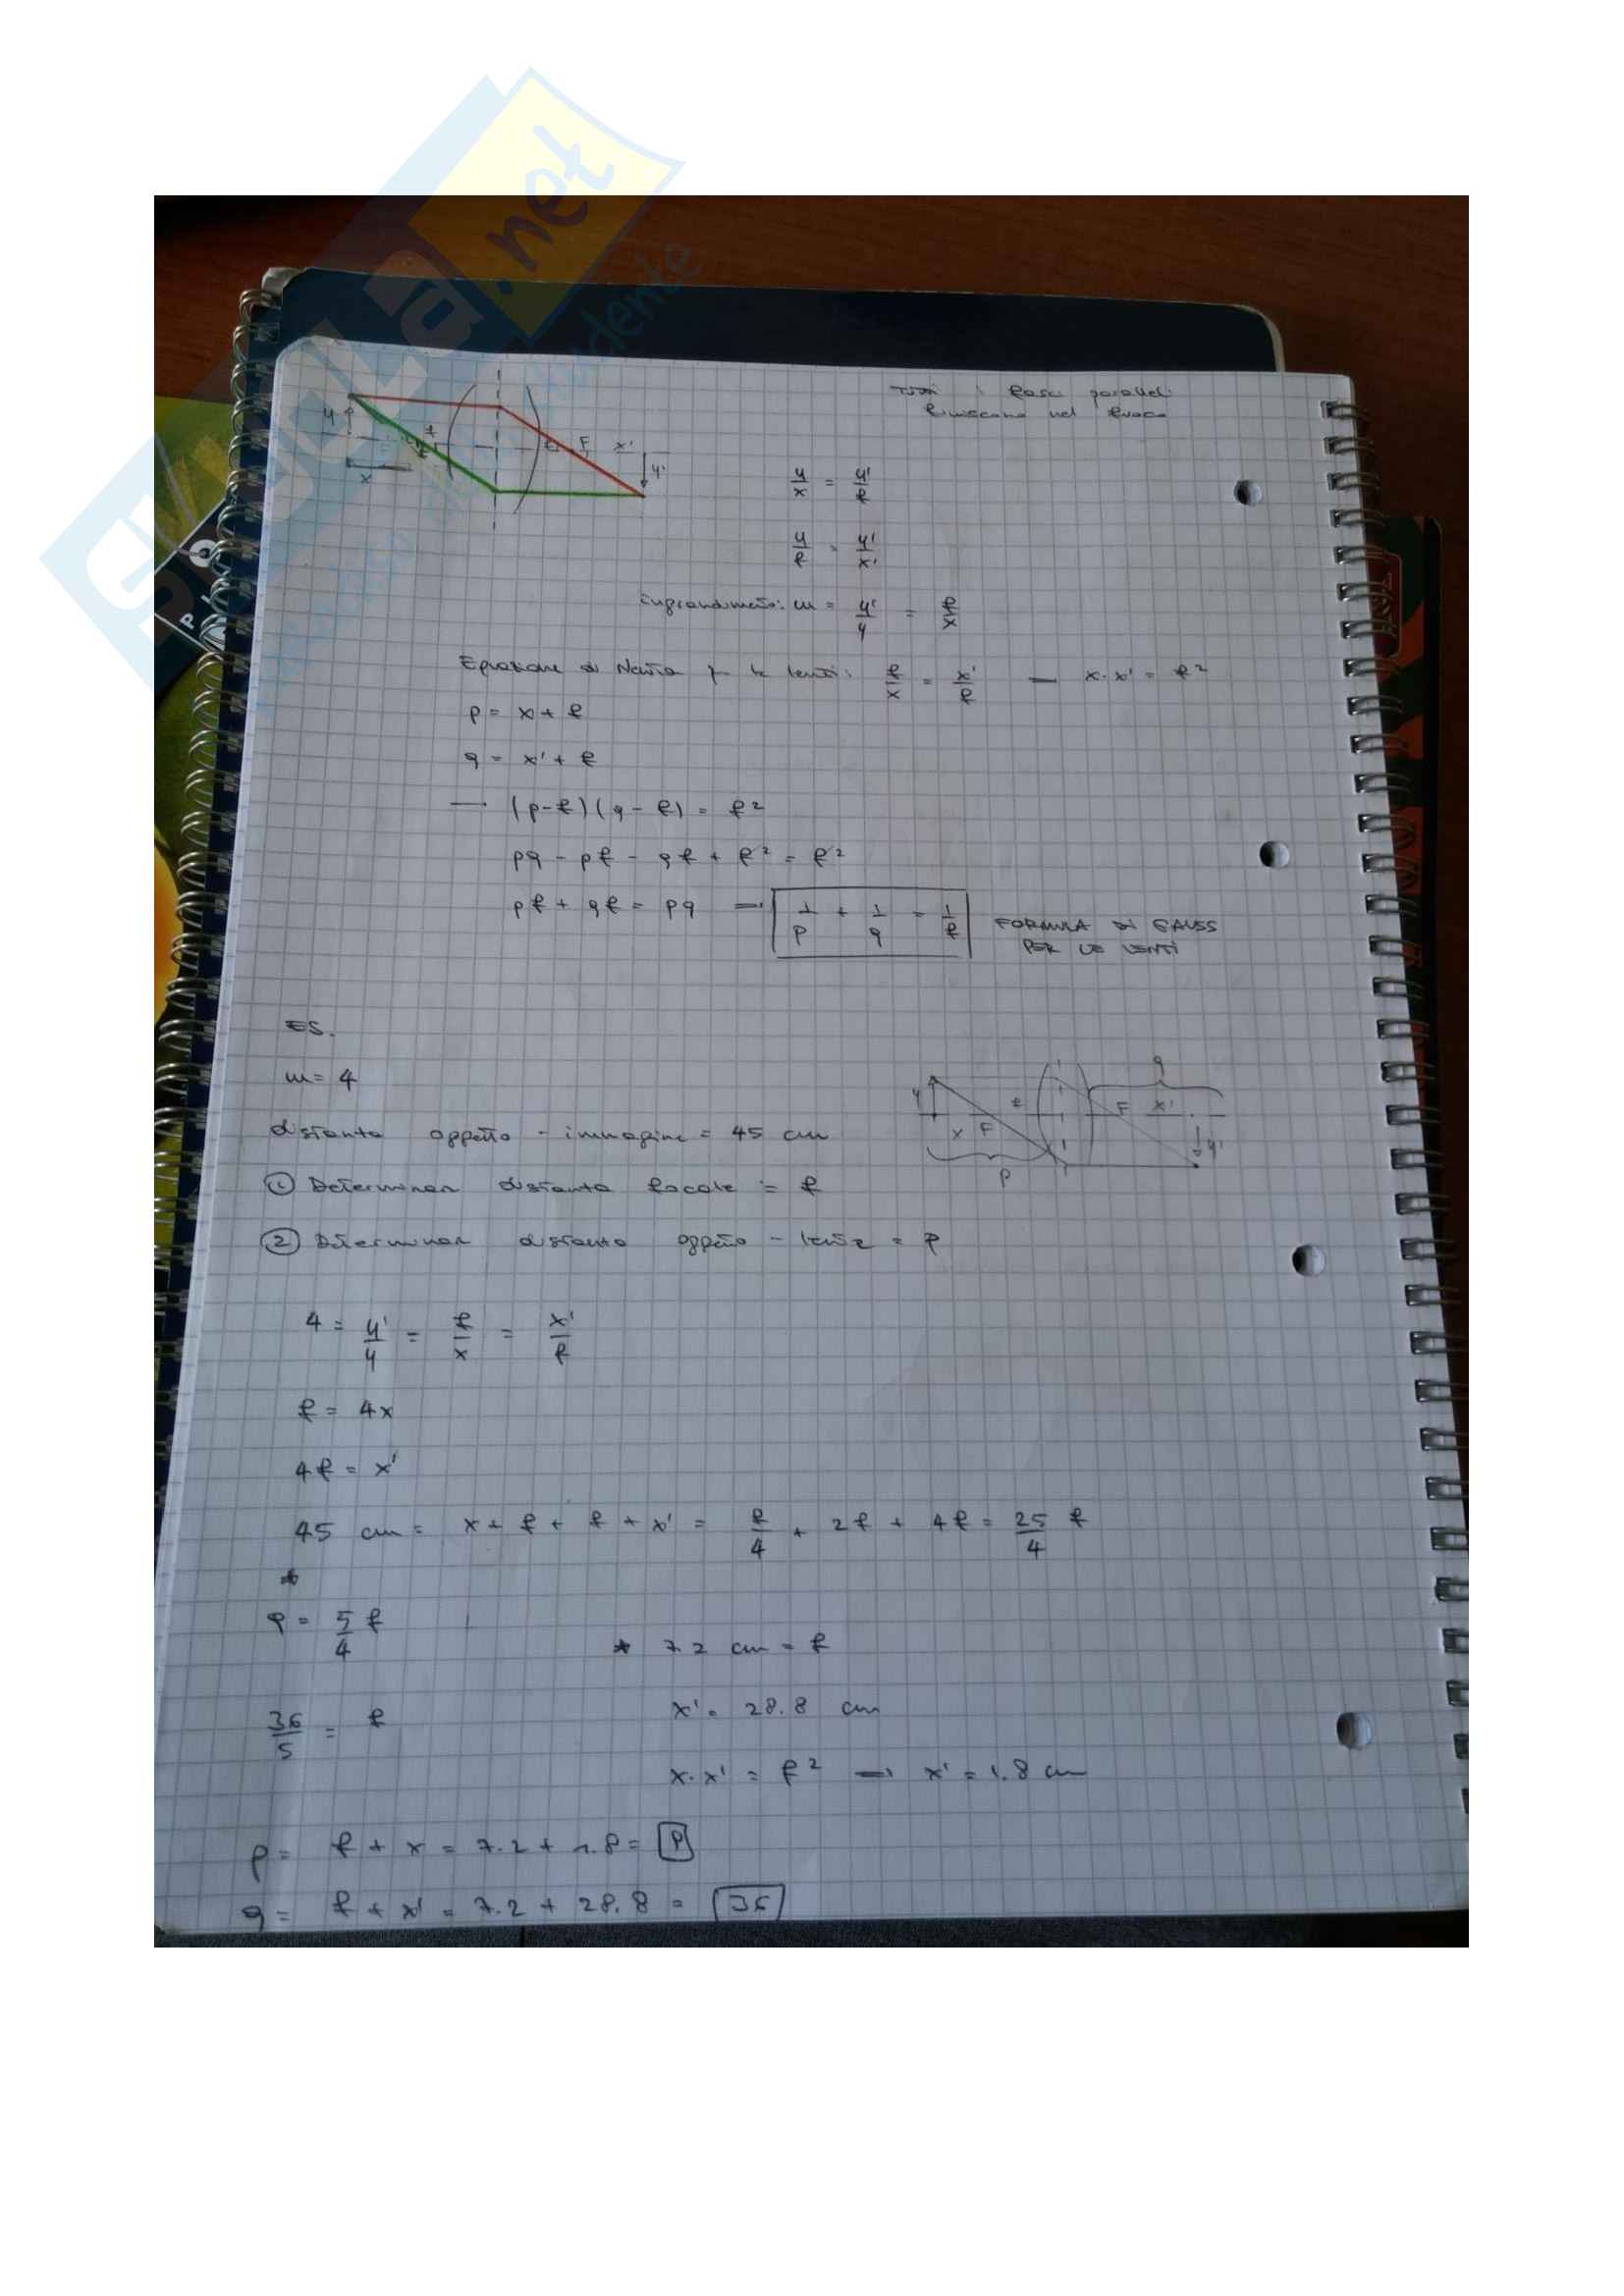 SKUOLA.net
y x f F x' y'
Tutti i fasci paralleli
finiscono nel fuoco
y/x = y'/f
y/f = y'/x'
ingrandimento: m = y'/y = f/x
Equazione di Newton per le lenti: f/x = x'/f — x·x' = f²
p = x + f
q = x' + f
— (p-f)(q-f) = f²
pq - pf - qf + f² = f²
pf + qf = pq → 1/p + 1/q = 1/f FORMULA DI GAUSS
PER LE LENTI
ES.
m = 4
distanza oggetto - immagine = 45 cm
y x F f p F x' q y'
① Determinare distanza focale = f
② Determinare distanza oggetto - lente = p
4 = y'/y = f/x = x'/f
f = 4x
4f = x'
45 cm = x + f + f + x' = f/4 + 2f + 4f = 25/4 f
*
p = 5/4 f
* 7.2 cm = f
36/5 = f
x' = 28.8 cm
x·x' = f² → x' = 1.8 cm
p = f + x = 7.2 + 1.8 = 9
q = f + x' = 7.2 + 28.8 = 36